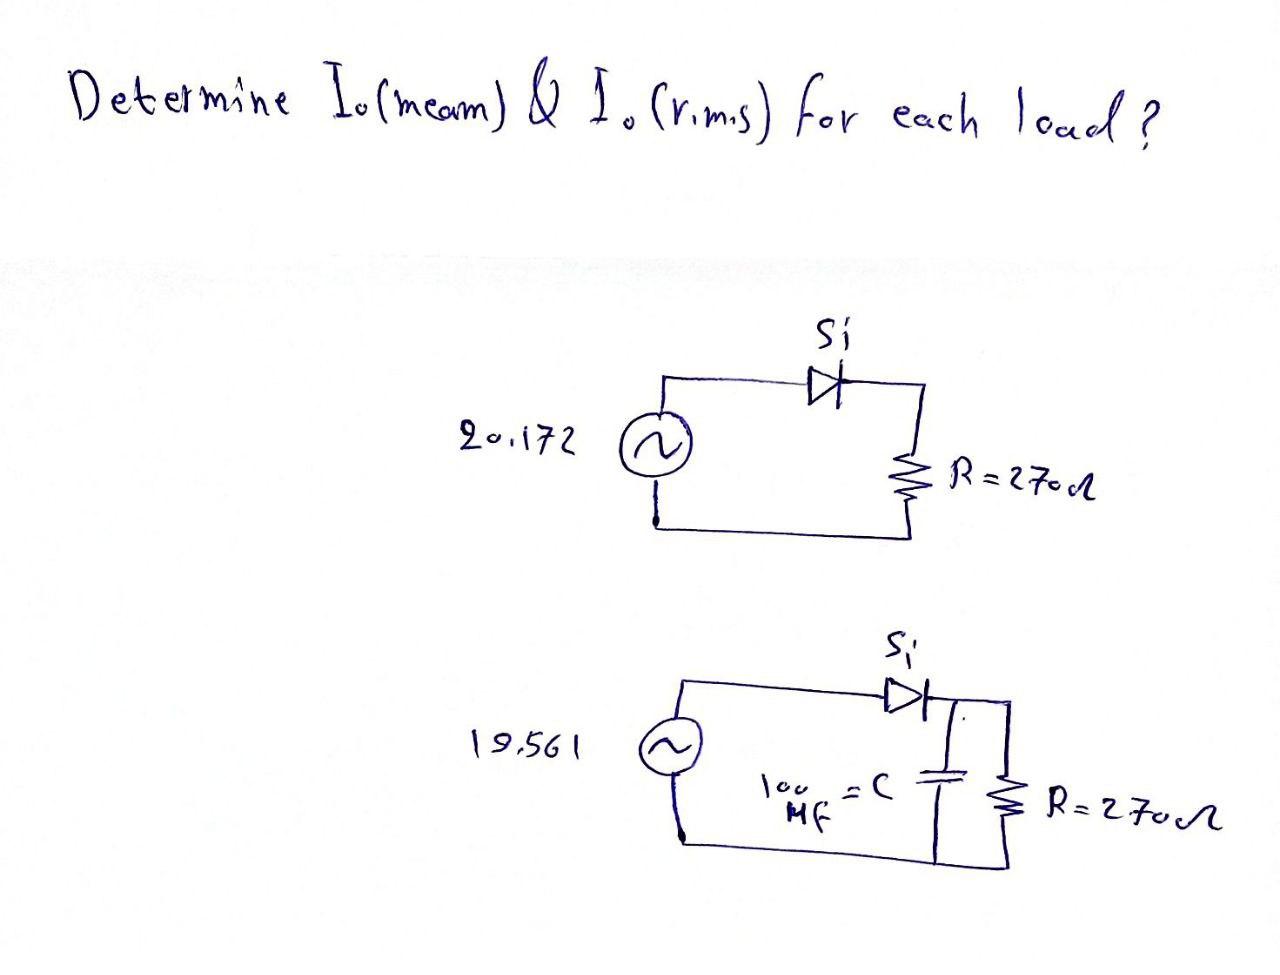 Determine Io(mean) & Io(r.m.s) for each load?
Si
20.172
R=270Ω
Si
19.561
100 MF = C
R=270Ω